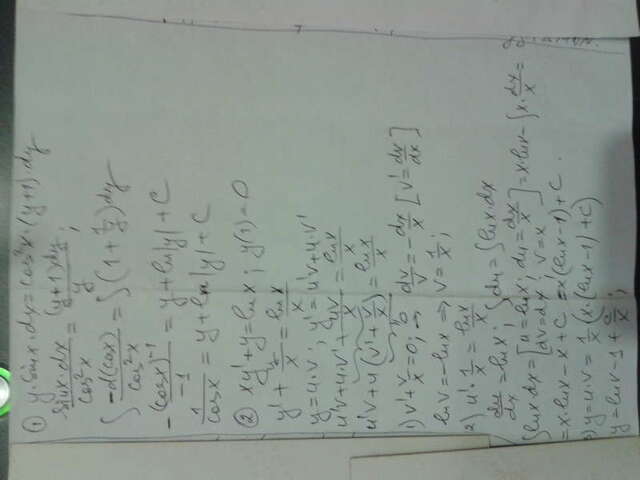 ① y·sinx·dx=cos²x·(y+1)·dy
sinx·dx/cos²x = (y+1)dy/y;
∫ -d(cosx)/cos²x = ∫(1+1/y)dy
-(cosx)⁻¹/-1 = y+ln|y|+C
1/cosx = y+ln|y|+C
② xy'+y=lnx; y(1)=0
y'+y/x=lnx/x
y=u·v; y'=u'v+u·v'
u'v+u·v'+uv/x=lnx/x
u'v+u(v'+v/x)=lnx/x
1) v'+v/x=0; ⇒ dv/v=-dx/x [v'=dv/dx]
lnv=-lnx ⇒ v=1/x;
2) u'·1/x=lnx/x
du/dx=lnx; ∫du=∫lnx·dx
∫lnx·dx=[u=lnx; du=dx/x dv=dx; v=x]=x·lnx-∫x·dx/x=
=x·lnx-x+C=x(lnx-1)+C.
3) y=u·v=1/x(x·(lnx-1)+C)
y=lnx-1+C/x;